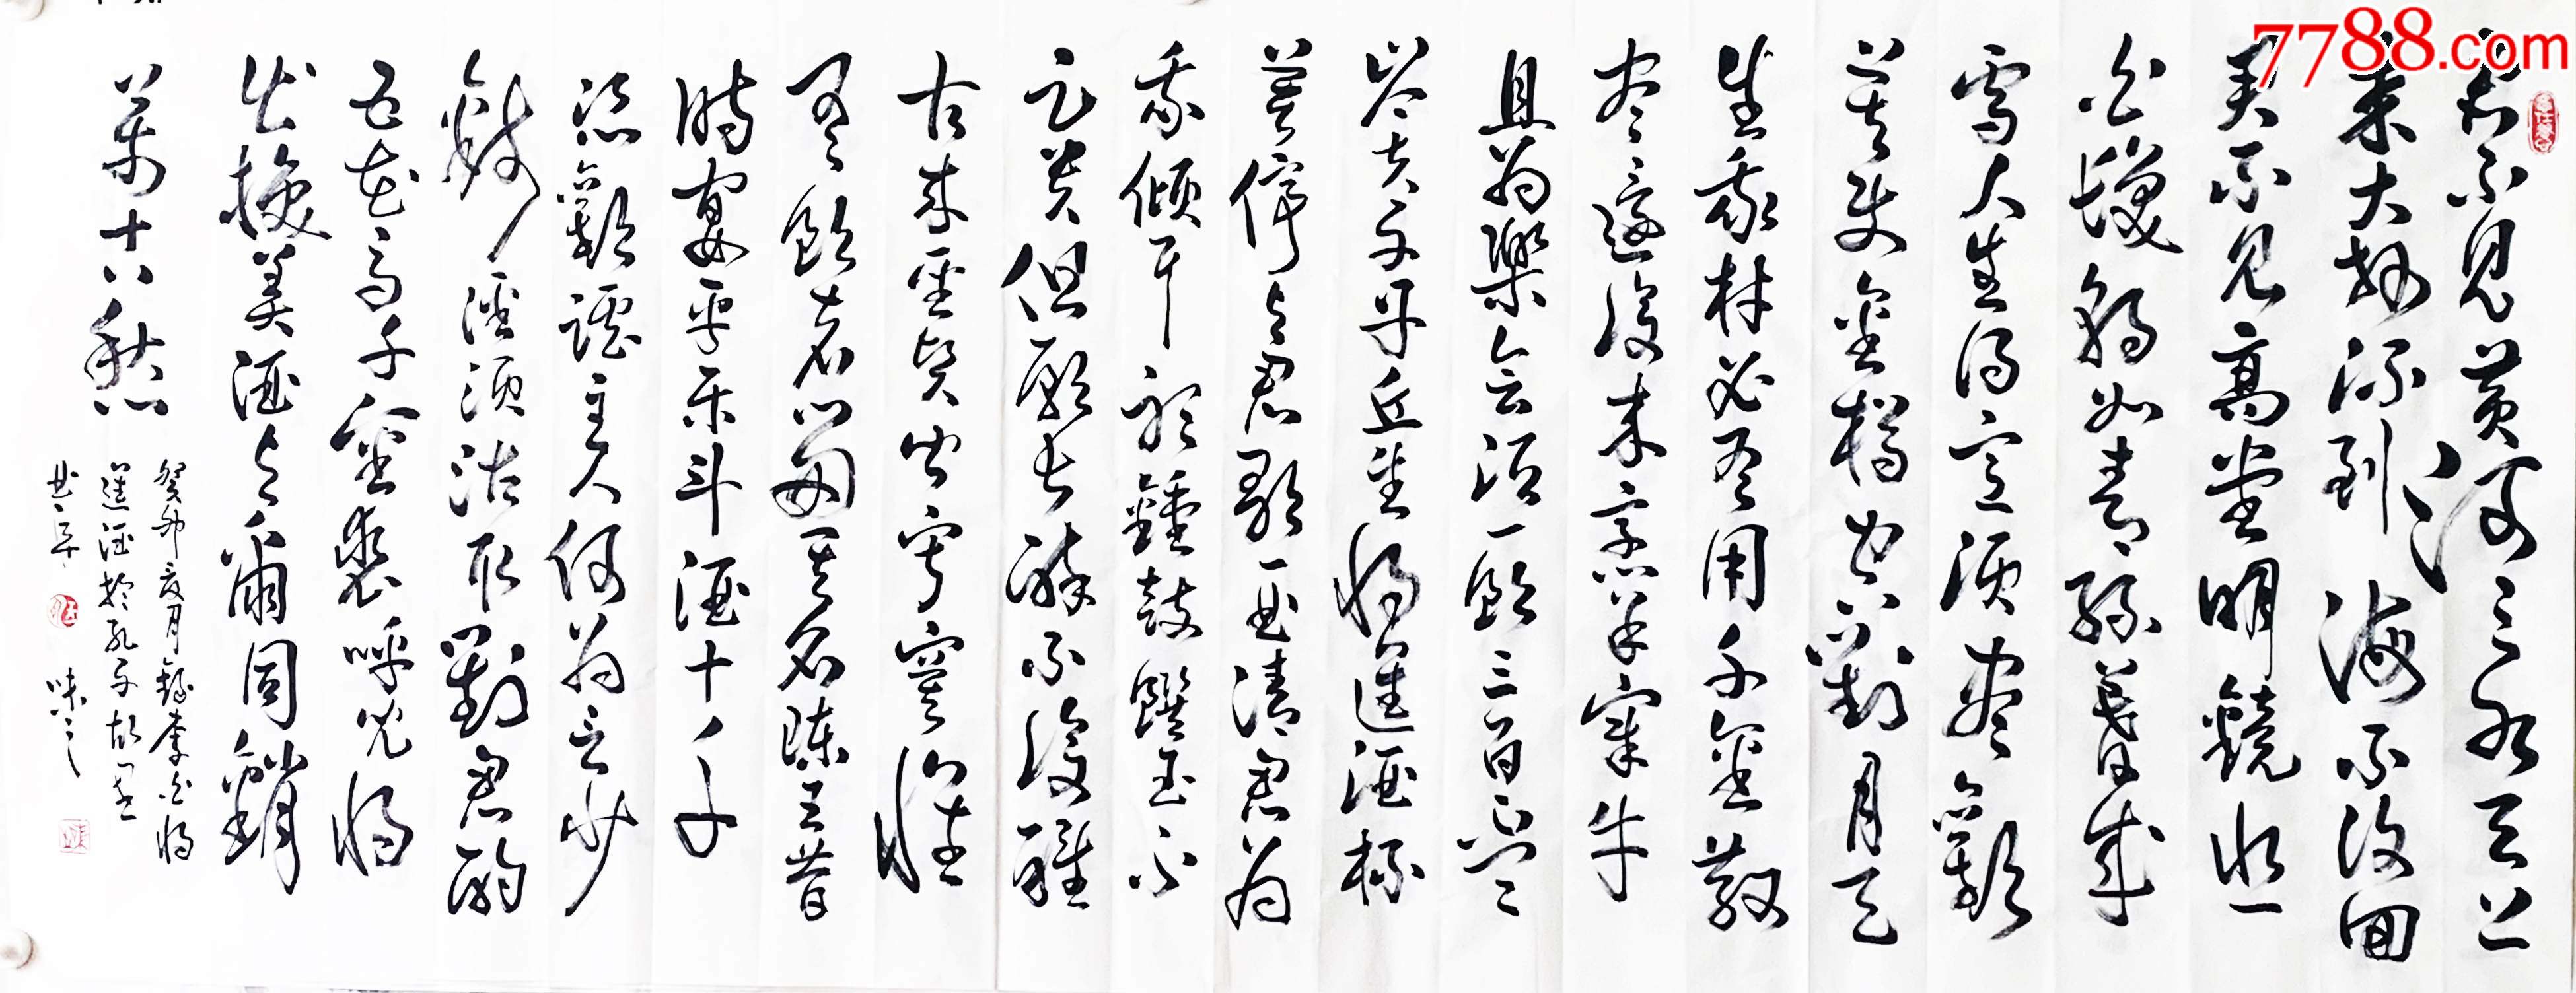 7788.com
君不見黄河之水天上
来奔流到海不復回
君不見高堂明鏡悲
白髮朝如青絲暮成
雪人生得意須盡歡
莫使金樽空對月天
生我材必有用千金散
盡還復来烹羊宰牛
且為樂會須一飲三百杯
岑夫子丹丘生將進酒杯
莫停與君歌一曲清君為
我傾耳聽鐘鼓饌玉不
足貴但願長醉不復醒
古来聖賢皆寂寞惟
有飲者留其名陳王昔
時宴平樂斗酒十千
恣歡謔主人何為言少
錢徑須沽取對君酌
五花馬千金裘呼兒將
出換美酒與爾同銷
萬古愁
癸卯夏月錄李白將
進酒於孔子故里
曲阜 味之